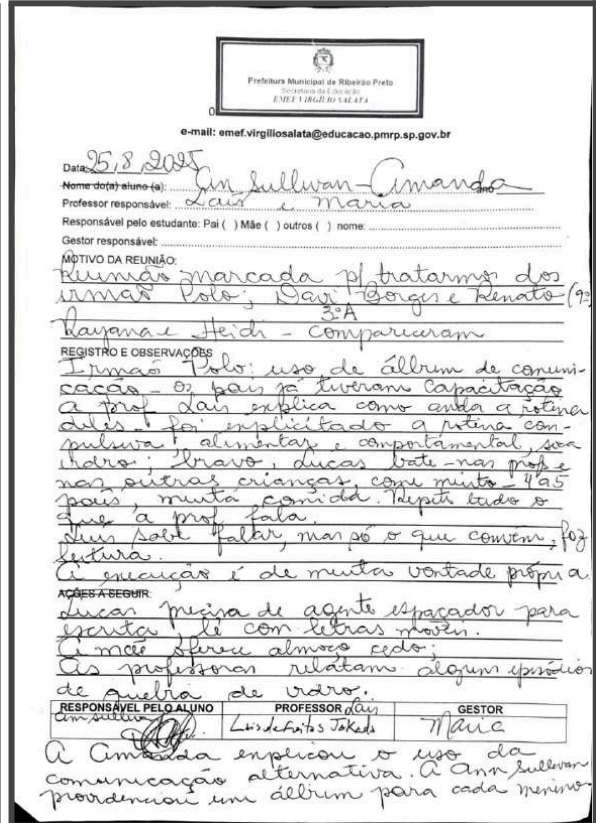 Prefeitura Municipal de Ribeirão Preto
Secretaria da Educação
EMEF VIRGÍLIO SALATA
0
e-mail: emef.virgiliosalata@educacao.pmrp.sp.gov.br
Data: 25, 8, 2025
Nome do(a) aluno (a): Ann Sullivan - Amanda
Professor responsável: Laís e Maria
Responsável pelo estudante: Pai ( ) Mãe ( ) outros ( ) nome:
Gestor responsável:
MOTIVO DA REUNIÃO:
Reunião marcada p/ tratarmos dos
irmão Polo; Davi Borges e Renato (9º
3º A
Rayana e Heidi - compareceram
REGISTRO E OBSERVAÇÕES
Irmão Polo: uso de álbrum de comuni-
cação - os pais já tiveram capacitação
a prof Laís explica como anda a rotina
deles - foi explicitado a rotina com-
pulsiva, alimentar e comportamental,
vidro; bravo, Lucas bate - nas profs e
nas outras crianças, come muito - 4 a 5
pães, muita comida. Repete tudo o
que a prof fala.
Luis sabe falar, mas só o que convém, faz
leitura.
A execução é de muita vontade própria.
AÇÕES A SEGUIR:
Lucas precisa de agente espaçador para
escrita, lê com letras moveis.
A mãe oferece almoço cedo;
As professoras relatam algum episódios
de quebra de vidro.
RESPONSÁVEL PELO ALUNO PROFESSOR Laís GESTOR
ann sullivan Laís de Freitas Maria
A Amanda explicou o uso da
comunicação alternativa. A Ann Sullivan
providenciou um álbrum para cada menino.